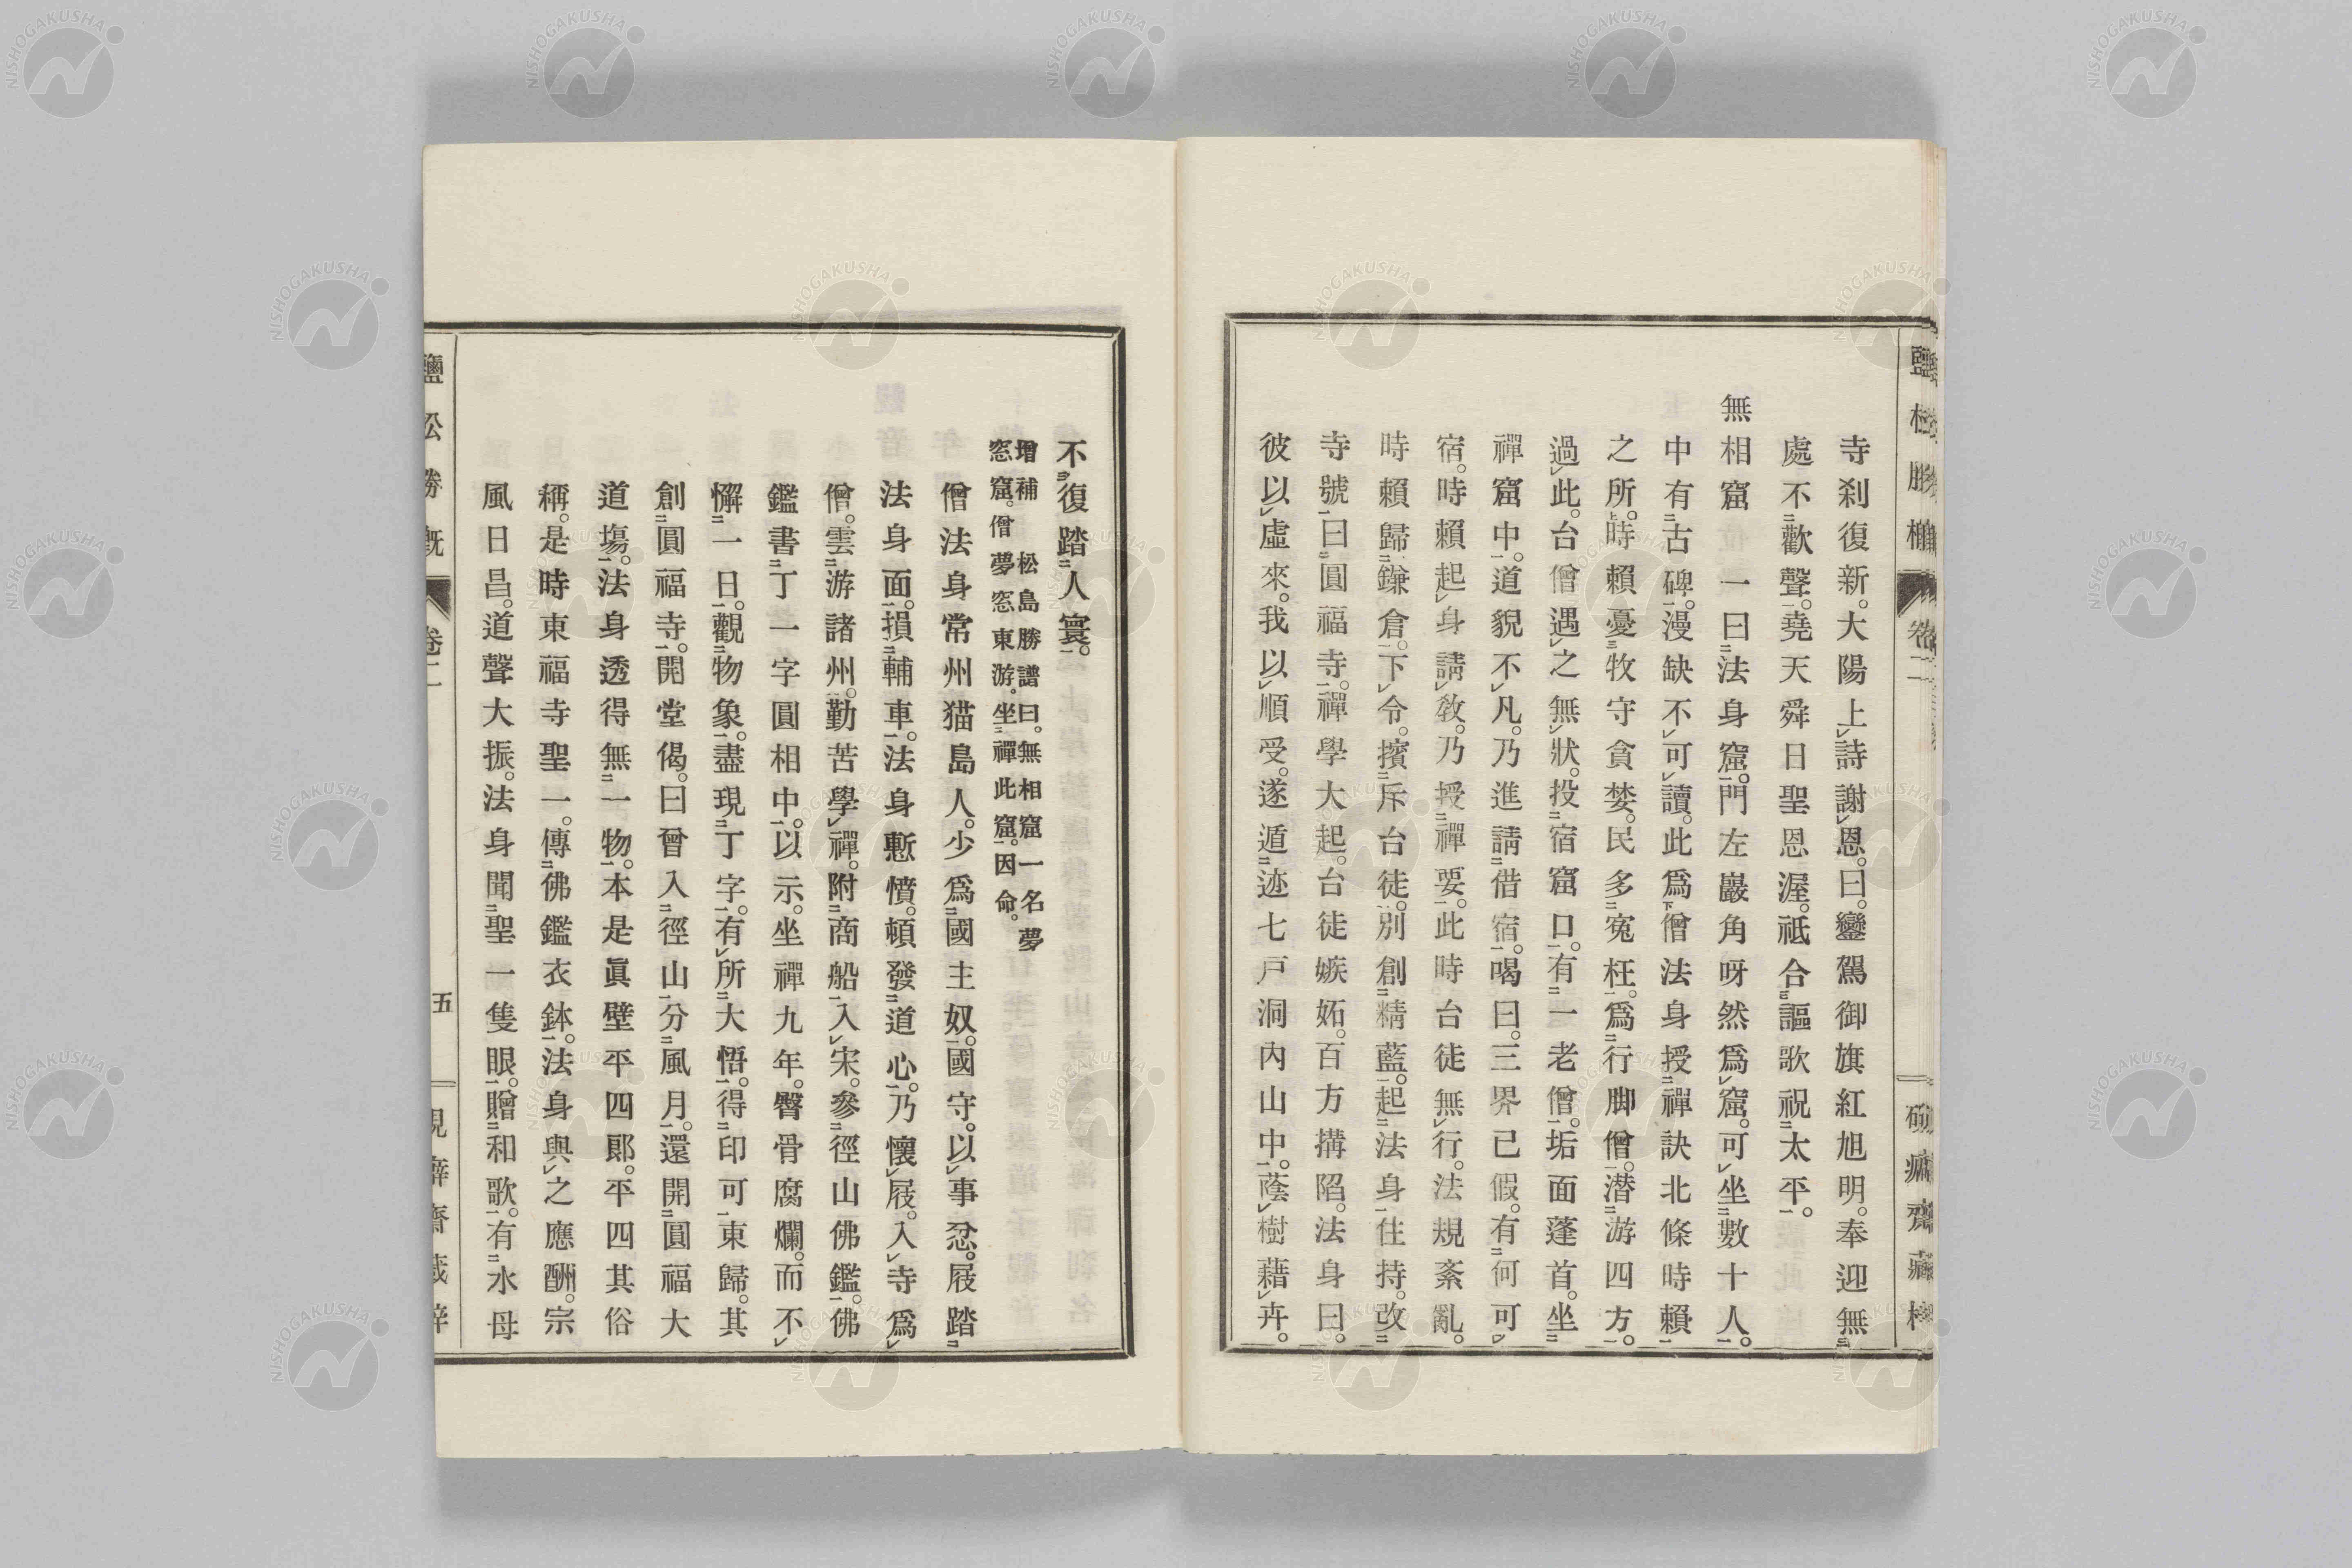 寺刹復新。大陽上詩謝恩。曰。鑾駕御旗紅旭明。奉迎無
處不歡聲。堯天舜日聖恩渥。祗合謳歌祝太平。
無相窟 一曰法身窟。門左巖角呀然爲窟。可坐數十人。
中有古碑。漫缺不可讀。此爲僧法身授禪訣北條時賴
之所。時賴憂牧守貪婪。民多寃枉。爲行脚僧。潜游四方。
過此。台僧遇之無狀。投宿窟口。有一老僧。垢面蓬首。坐
禪窟中。道貌不凡。乃進請借宿。喝曰。三界已假。有何可
宿。時賴起身請敎。乃授禪要。此時台徒無行。法規紊亂。
時賴歸鎌倉。下令。擯斥台徒。別創精藍。起法身住持。改
寺號曰圓福寺。禪學大起。台徒嫉妬。百方搆陷。法身曰。
彼以虛來。我以順受。遂遁迹七戸洞内山中。蔭樹藉卉。
不復踏人寰。
增補 松島勝譜曰。無相窟一名夢
窓窟。僧夢窓東游。坐禪此窟。因命。
僧法身常州猫島人。少爲國主奴。國守。以事忿。屐踏
法身面。損輔車。法身慙憤。頓發道心。乃懷屐。入寺爲
僧。雲游諸州。勤苦學禪。附商船入宋。參徑山佛鑑。佛
鑑書丁一字圓相中。以示。坐禪九年。臀骨腐爛。而不
懈一日。觀物象。盡現丁字。有所大悟。得印可東歸。其
創圓福寺。開堂偈。曰曾入徑山分風月。還開圓福大
道塲。法身透得無一物。本是眞壁平四郎。平四其俗
稱。是時東福寺聖一。傳佛鑑衣鉢。法身與之應酬。宗
風日昌。道聲大振。法身聞聖一隻眼。贈和歌。有水母
鹽松勝概 卷二 五